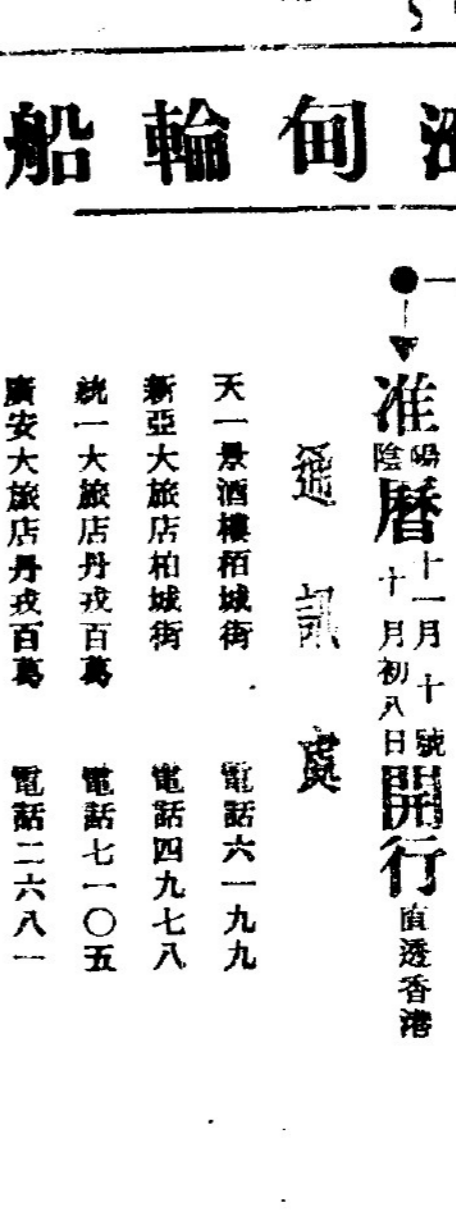 甸輪船
准
陽
陰
曆
十一月十號
十月初八日
開行
直透香港
通訊處
天一景酒樓栢城街 電話六一九九
新亞大旅店柏城街 電話四九七八
統一大旅店丹戎百葛 電話七一〇五
廣安大旅店丹戎百葛 電話二六八一